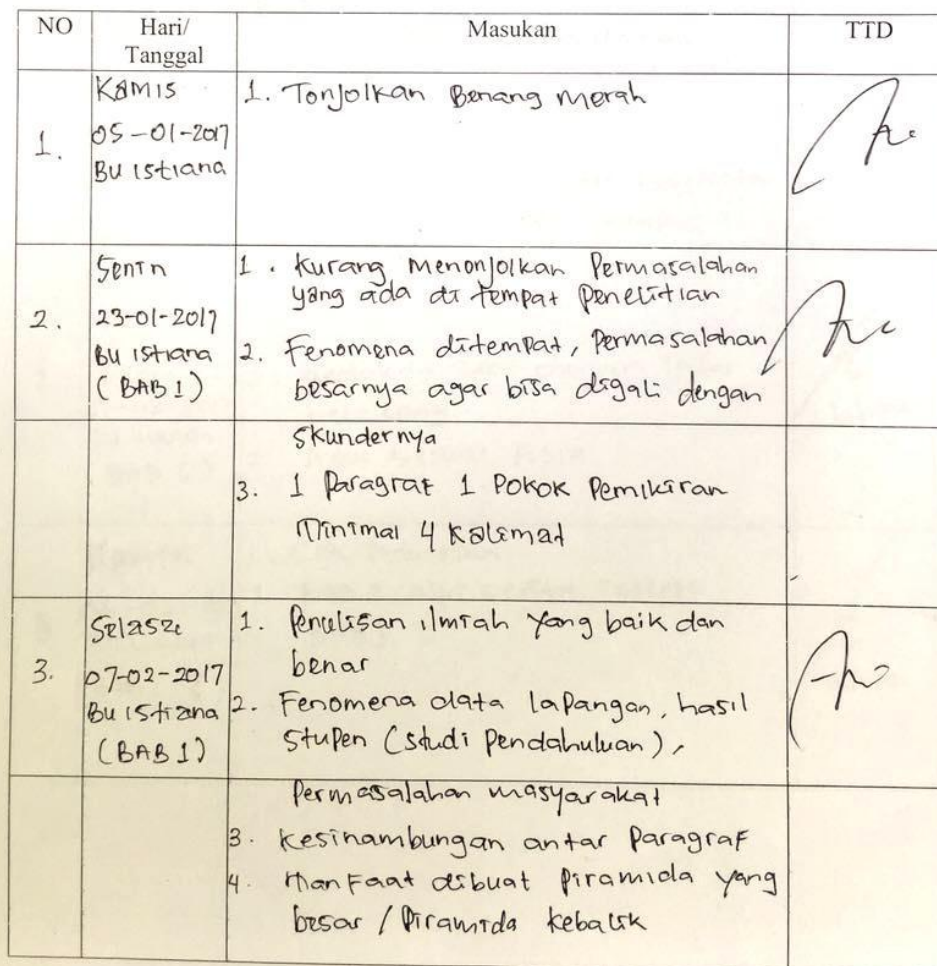 NO Hari/ Tanggal Masukan TTD
1. Kamis
05-01-2017
Bu Istiana
1. Tonjolkan Benang merah
2. Senin
23-01-2017
Bu Istiana
(BAB 1)
1. Kurang Menonjolkan Permasalahan
yang ada di tempat penelitian
2. Fenomena ditempat, Permasalahan
besarnya agar bisa digali dengan
skundernya
3. 1 Paragraf 1 Pokok Pemikiran
Minimal 4 Kalimat
3. Selasa
07-02-2017
Bu Istiana
(BAB 1)
1. Penulisan ilmiah yang baik dan
benar
2. Fenomena data lapangan, hasil
stupen (studi pendahuluan),
Permasalahan masyarakat
3. Kesinambungan antar Paragraf
4. Manfaat dibuat piramida yang
besar / Piramida kebalik